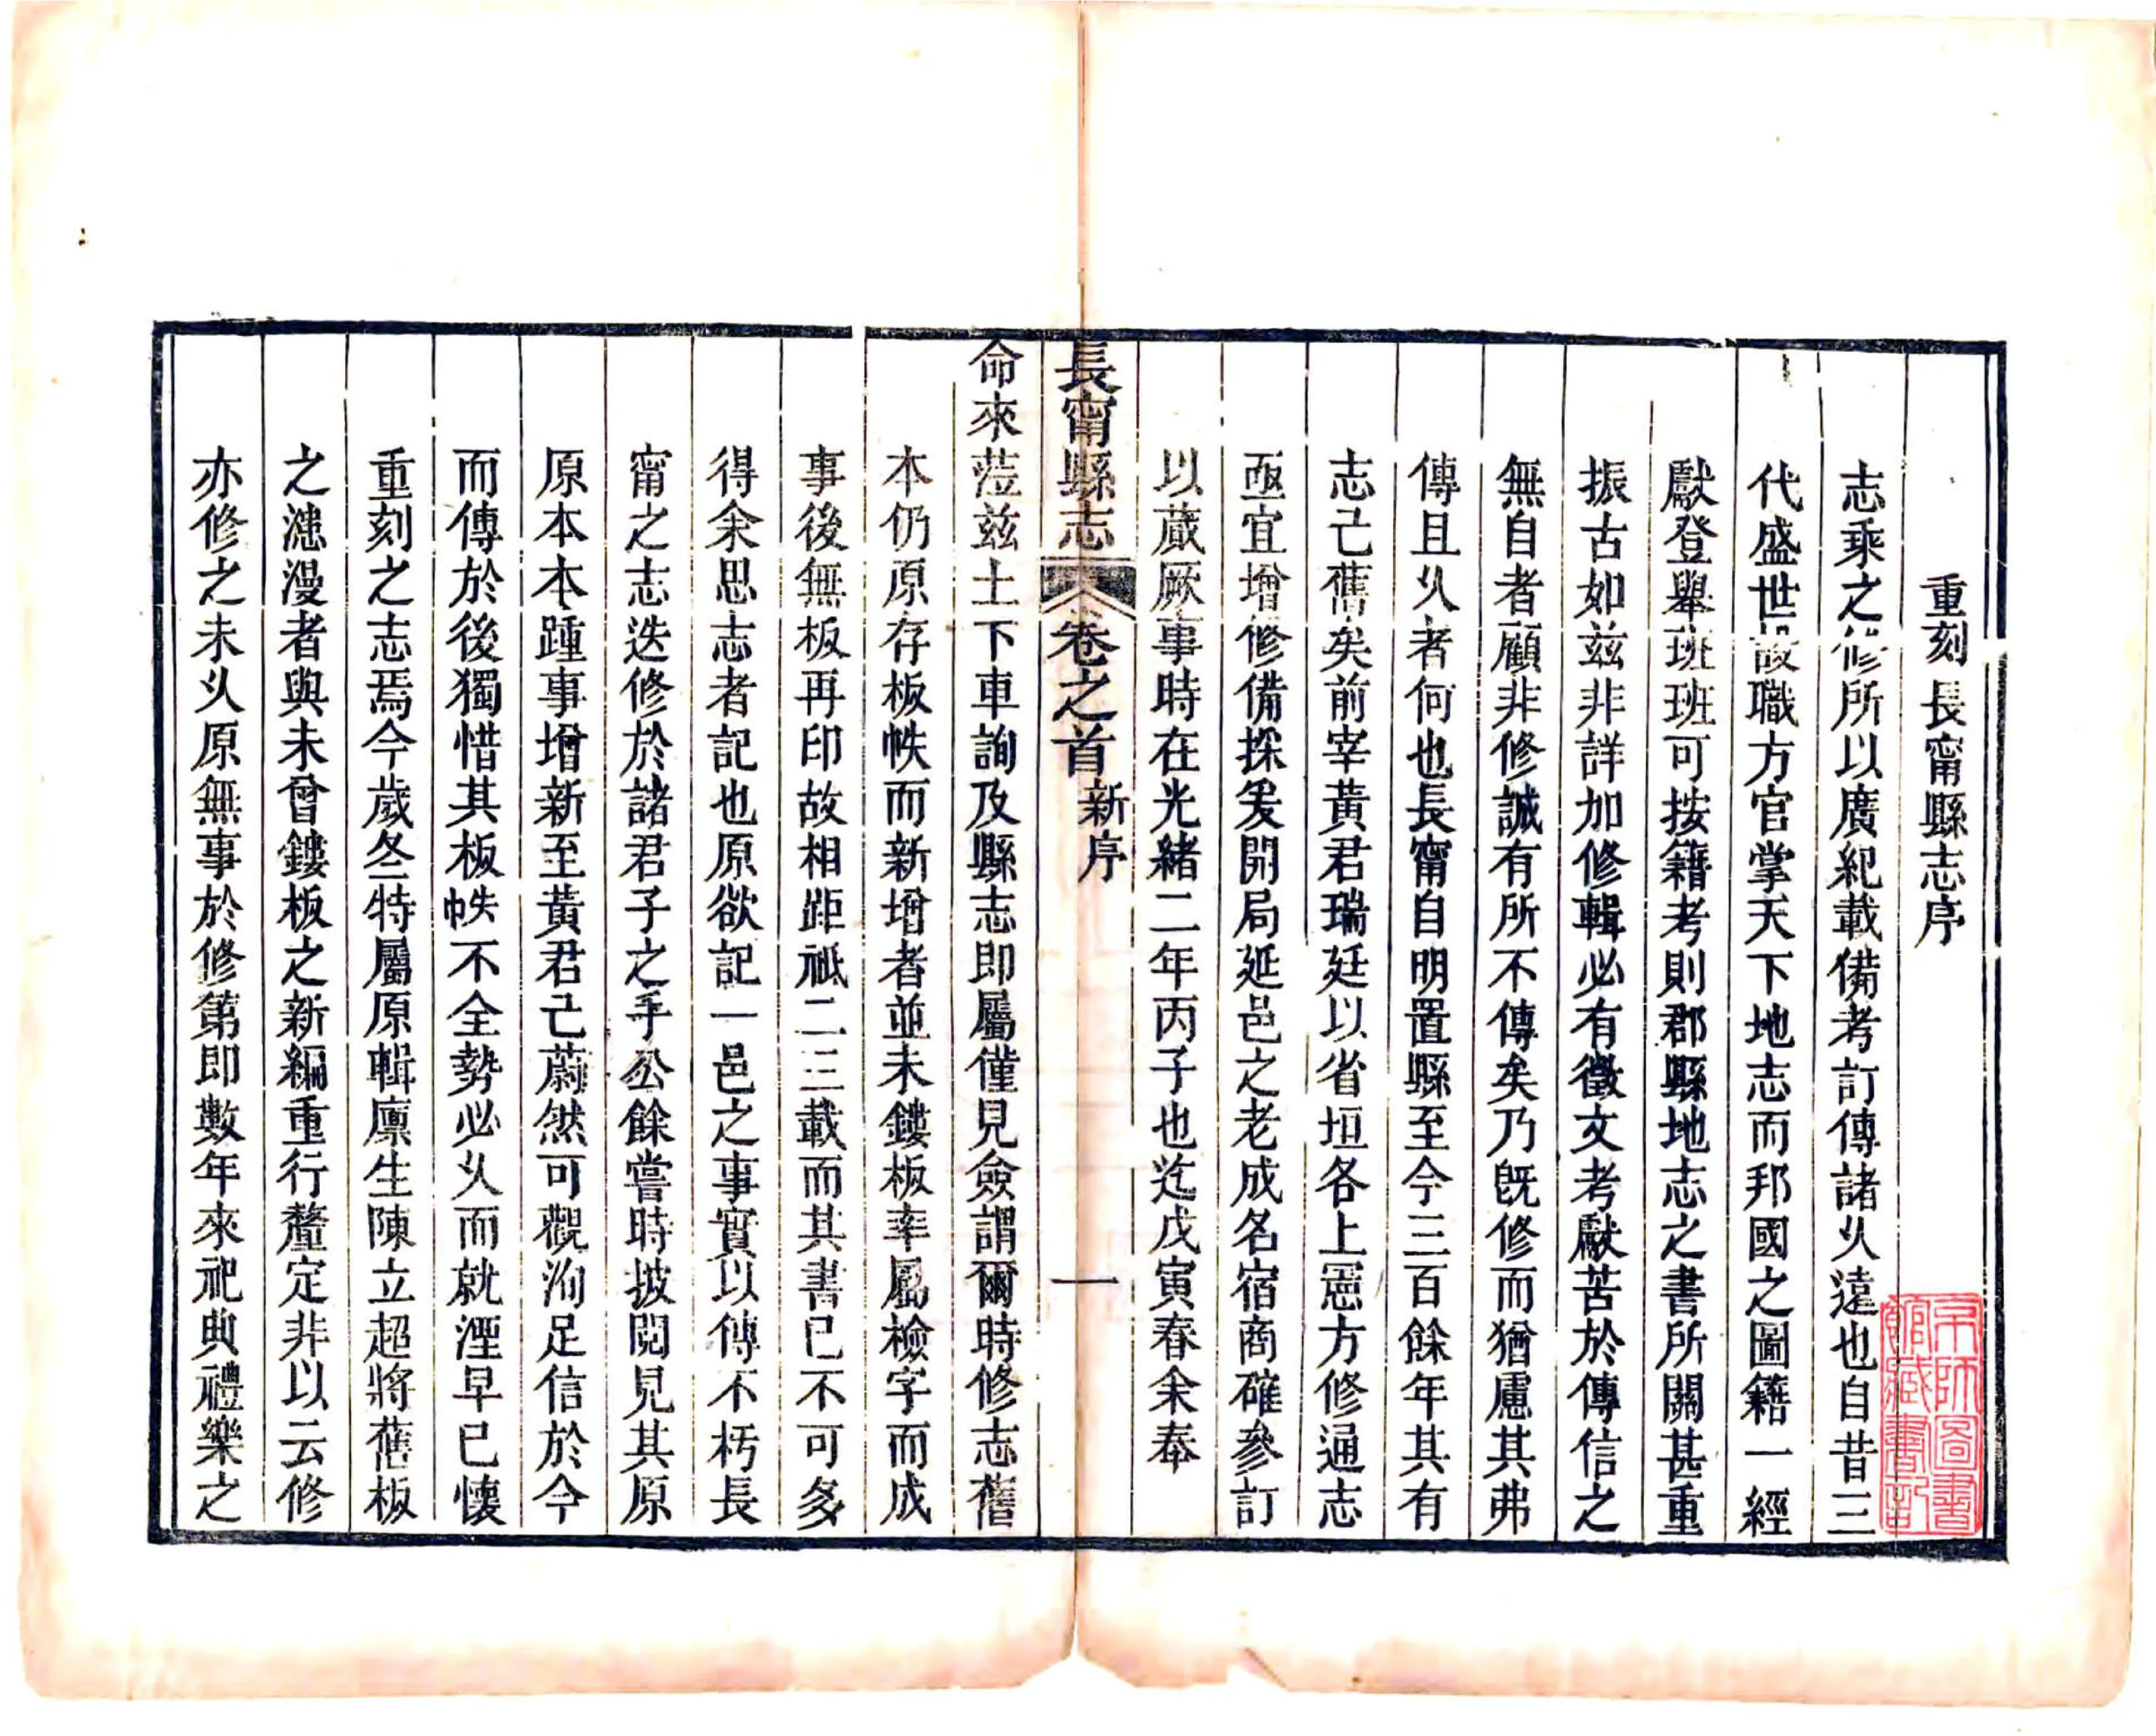 重刻長甯縣志序
志乘之修所以廣紀載備考訂傳諸乆遠也自昔三
代盛世設職方官掌天下地志而邦國之圖籍一經
獻登舉班班可按籍考則郡縣地志之書所關甚重
振古如茲非詳加修輯必有徵文考獻苦於傳信之
無自者顧非修誠有所不傳矣乃旣修而猶慮其弗
傳且乆者何也長甯自明置縣至今三百餘年其有
志己舊矣前宰黃君瑞廷以省垣各上憲方修通志
亟宜增修備探爰開局延邑之老成名宿商確參訂
以蕆厥事時在光緒二年丙子也迄戊寅春余奉
長甯縣志 卷之首 新序 一
命來蒞茲土下車詢及縣志即屬僅見僉謂爾時修志舊
本仍原存板帙而新增者並未鏤板率屬檢字而成
事後無板再印故相距祗二三載而其書已不可多
得余思志者記也原欲記一邑之事實以傳不朽長
甯之志迭修於諸君子之手公餘嘗時披閱見其原
原本本踵事增新至黃君己蔚然可觀洵足信於今
而傳於後獨惜其板帙不全勢必乆而就湮早已懷
重刻之志焉今歲冬特屬原輯廪生陳立超將舊板
之漶漫者與未曾鏤板之新編重行釐定非以云修
亦修之未乆原無事於修第即數年來祀典禮樂之
京師圖書
館藏書記